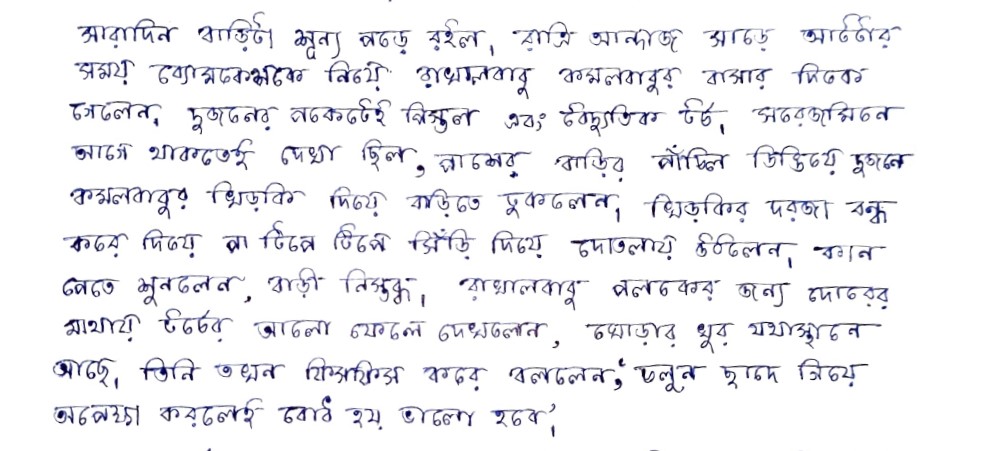 সারাদিন বাড়িটা শূন্য পড়ে রইল, রাত্রি আন্দাজ সাড়ে আটটার
সময় ব্যোমকেশকে নিয়ে রাখালবাবু কমলবাবুর বাসার দিকে
গেলেন, দুজনের পকেটেই পিস্তল এবং বৈদ্যুতিক টর্চ, সরেজমিনে
আগে থাকতেই দেখা ছিল, পাশের বাড়ির পাঁচিল ডিঙিয়ে দুজনে
কমলবাবুর খিড়কি দিয়ে বাড়িতে ঢুকলেন, খিড়কির দরজা বন্ধ
করে দিয়ে পা টিপে টিপে সিঁড়ি দিয়ে দোতলায় উঠলেন, কান
পেতে শুনলেন, বাড়ী নিস্তব্ধ, রাখালবাবু পলকের জন্য দোরের
মাথায় টর্চের আলো ফেলে দেখলেন, ঘোড়ার খুর যথাস্থানে
আছে, তিনি তখন ফিসফিস করে বললেন, 'চলুন ছাদে গিয়ে
অপেক্ষা করলেই বোধ হয় ভালো হবে',